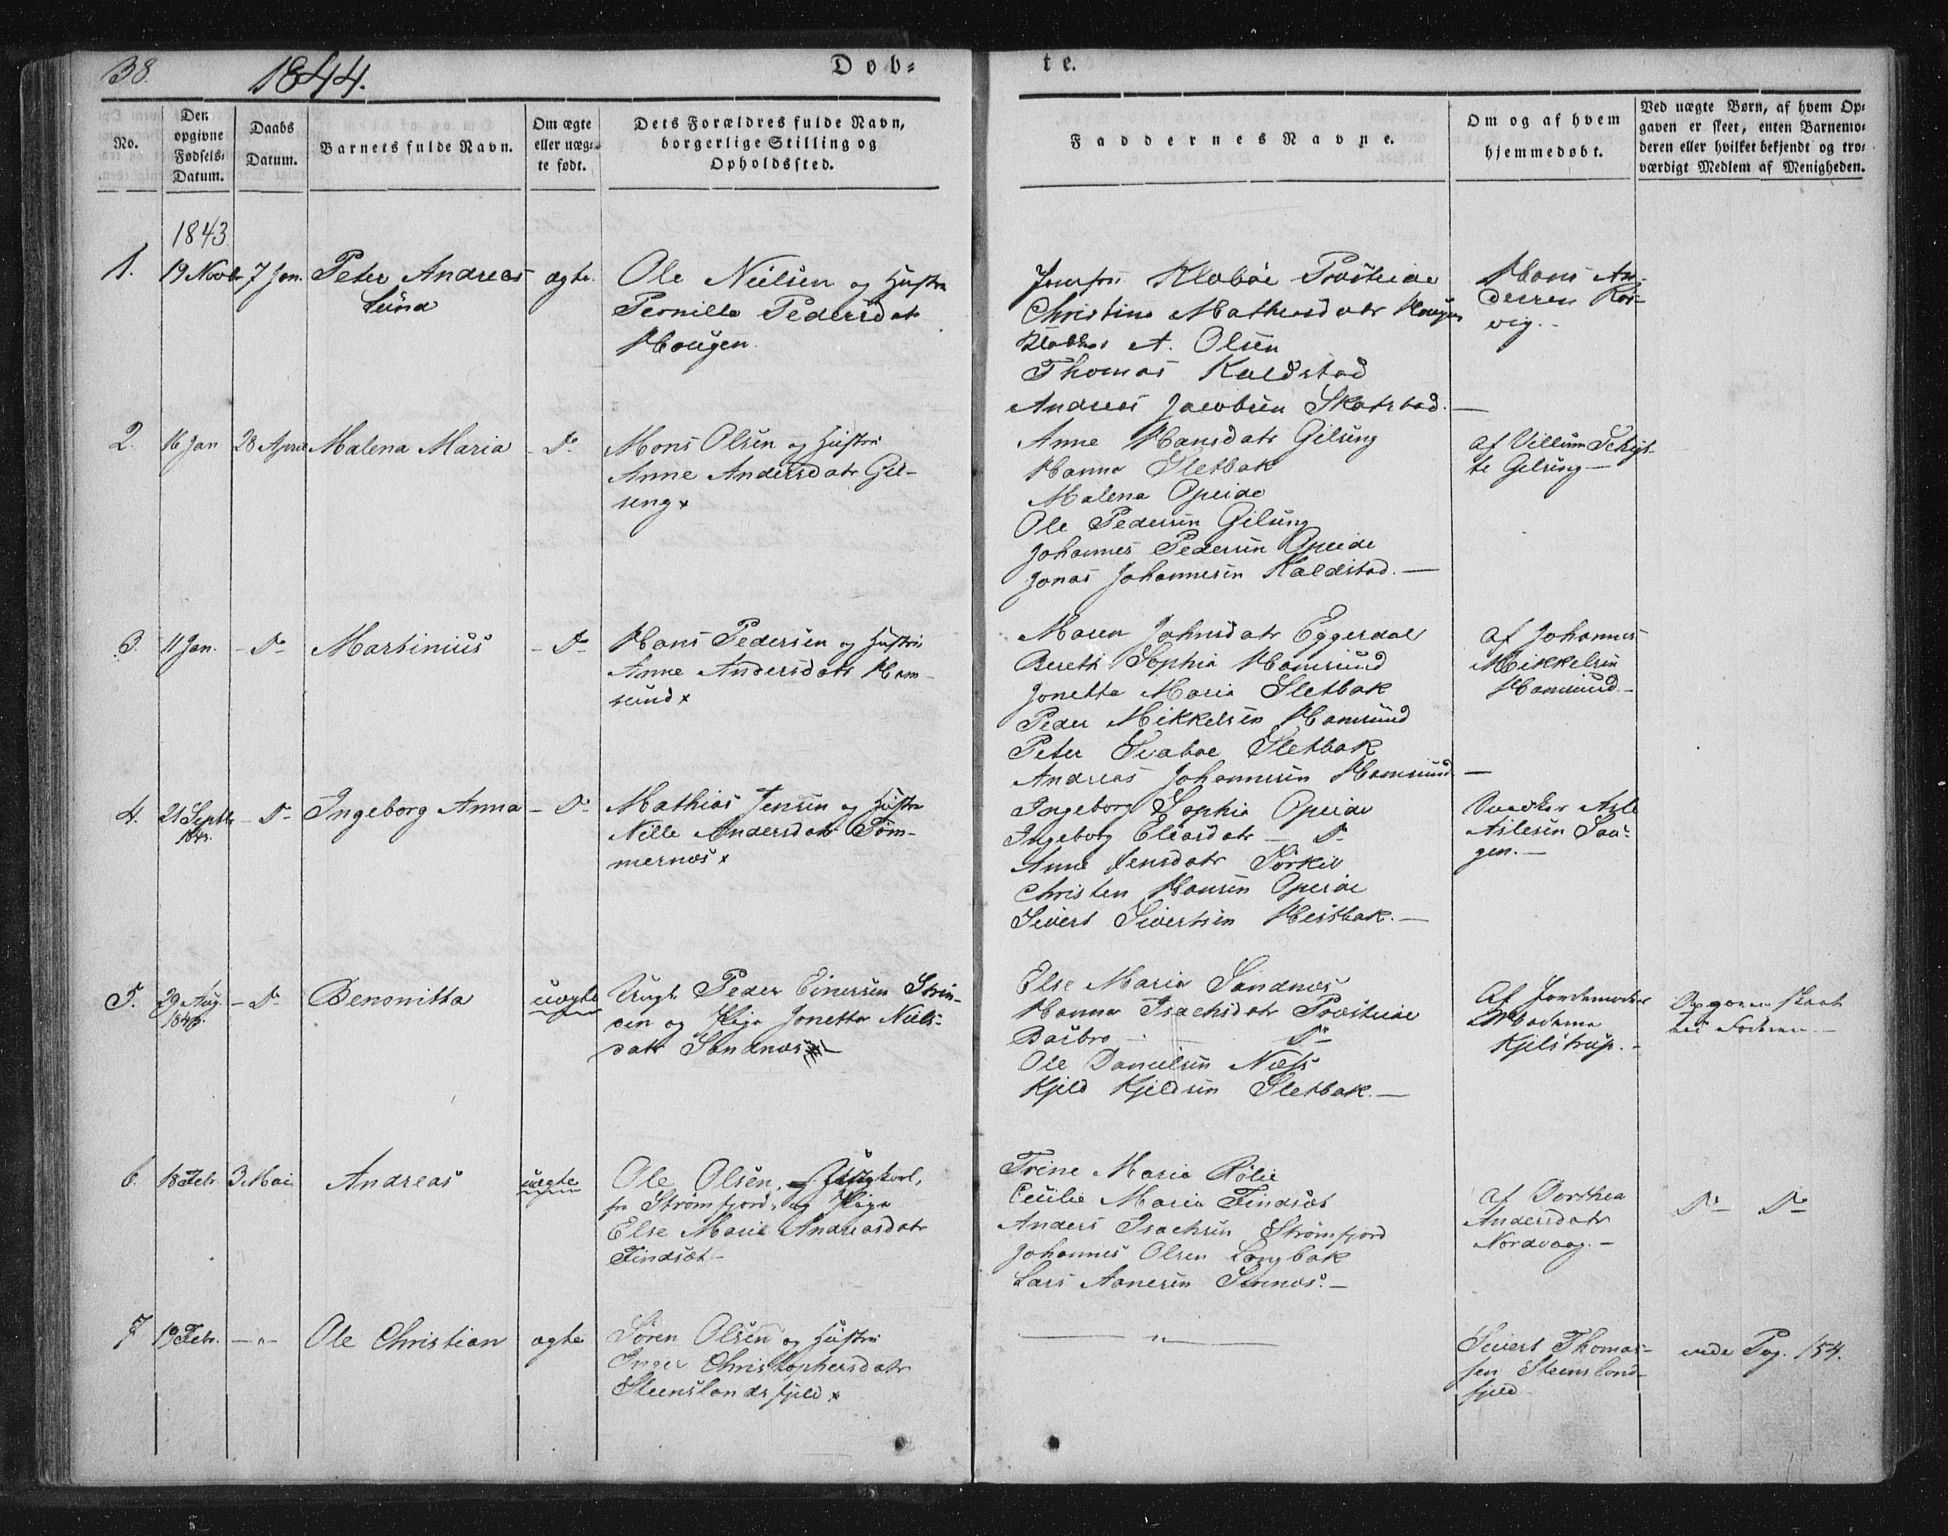 38.
1844.
Døb-
te.
No.
Den
opgivne
Fødsels-
Datum.
Daabs
Datum.
Barnets fulde Navn.
Om ægte
eller uæg-
te født.
Dets Forældres fulde Navn,
borgerlige Stilling og
Opholdssted.
Faddernes Navne.
Om og af hvem
hjemmedøbt.
Ved uægte Børn, af hvem Op-
gaven er skeet, enten Barnemo-
deren eller hvilket bekjendt og tro-
værdigt Medlem af Menigheden.
1843
1. 19 Novbr 7 Jan. Peter Andreas
Lund
ægte.
Ole Nielsen og Hustru
Pernille Pedersdatr
Haugen.
Jomfru Klæboe Præsteide
Christine Mathiesdatr Haugen
A. Olsen
Thomas Kaldstad
Andreas Jacobsen Skatstad. —
Hans An-
dersen Kos-
vig. -
2. 16 Jan 28 April Malena Maria - Do
Mons Olsen og Hustru
Anne Andersdatr Gil-
seng x
Anne Hansdatr Gilseng
Hanna Sletbak
Malena Opeide
Ole Pedersen Gilseng
Johannes Pedersen Opeide
Jonas Johannesen Kaldstad. —
af Villum Schjit-
te Gilseng —
3. 11 Jan. - Do - Martinius - Do
Hans Pedersen og Hustru
Anne Andersdatr Ham-
sund x
Maren Johnsdatr Eggerdal
Bereth Sophia Hamsund
Jonetta Maria Sletbak
Peder Mikkelsen Hamsund
Peter Svaboe Sletbak
Andreas Johannesen Hamsund —
af Johannes
Mikkelsen
Hamsund. -
4. 21 Septbr
1843.
- Do - Ingeborg Anna - Do
Mathias Jensen og Hustru
Nille Andersdatr Tøm-
mernæs x
Ingeborg Sophia Opeide
Ingeborg Eliasdatr — Do
Anne Jensdatr Torkil
Christen Hansen Opeide
Sivert Sivertsen Heisbak. —
Asle
Aslesen Sau-
gen. —
5. 29 Aug.
1843.
- Do Benonitta uægte
Ungk. Peder Einersen Strin-
den og Pige Jonetta Niels-
datr Sandnæs —
Else Maria Sandnæs
Hanna Isachsdatr Præsteide
Barbro — Do
Ole Danielsen Næss
Kjeld Kjeldsen Sletbak. —
Af Jordemoder
Madame
Kjelstrup. -
Opgaven skeet
ved Faderen. —
6. 18 Febr. 3 Mai Andreas uægte
Ole Olsen, Ungkarl,
fra Strømfjord, og Pige
Else Marie Andreasdatr
Findsæt -
Trine Maria Rølie
Cecilie Maria Findsæt
Anders Isachsen Strømfjord
Johannes Olsen Langbak
Lars Aanesen Steenæs. —
af Dorthea
Andersdatr
Nordvaag. -
Do — Do
7. 19 Febr. — „ - Ole Christian ægte
Søren Olsen og Hustru
Inger Christophersdatr
Steenslandsfjeld x
— „ —
Sivert Thomas-
sen Steensland-
fjeld
vide Pag. 154.